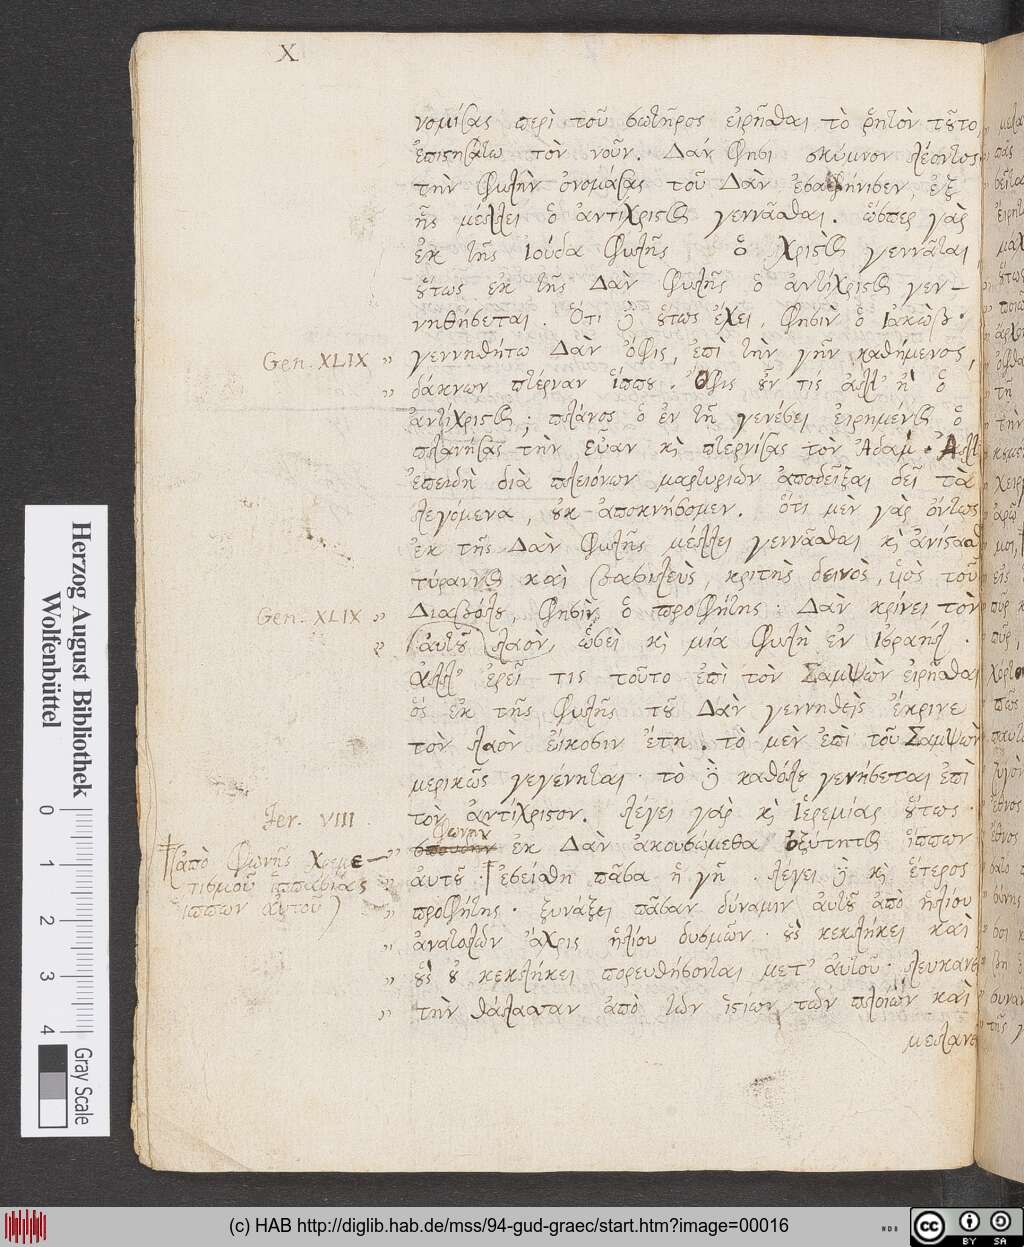 X
νομίσας περὶ τοῦ σωτῆρος εἰρῆσθαι τὸ ῥητὸν τοῦτο
ἐπιστησάτω τὸν νοῦν. Δὰν φησι σκύμνον λέοντος
τὴν φυλὴν ὀνομάσας τοῦ Δὰν ἐσαφήνισεν, ἐξ
ἧς μέλλει ὁ ἀντίχριστος γεννᾶσθαι. ὥσπερ γὰρ
ἐκ τῆς Ιούδα φυλῆς ὁ χριστὸς γεννᾶται,
οὕτως ἐκ τῆς Δὰν φυλῆς ὁ ἀντίχριστος γεν-
νηθήσεται. Ὅτι δὲ οὕτως ἔχει, φησὶν ὁ Ιακὼβ·
Gen. XLIX „ γεννηθήτω Δὰν ὄφις, ἐπὶ τὴν γῆν καθήμενος,
„ δάκνων πτέρναν ἵππου. Ὄφις οὖν τίς ἀλλ' ἢ ὁ
ἀντίχριστος; πλάνος ὁ ἐν τῇ γενέσει εἰρημένος ὁ
πλανήσας τὴν εὖαν κὶ πτερνίσας τὸν Ἀδαμ. Ἀλλ'
ἐπειδὴ διὰ πλειόνων μαρτυριῶν ἀποδεῖξαι δεῖ τὰ
λεγόμενα, οὐκ ἀποκνήσομεν. ὅτι μὲν γὰρ ὄντως
ἐκ τῆς Δὰν φυλῆς μέλλει γεννᾶσθαι κὶ ἀνίστασθ
τύραννος καὶ βασιλεὺς, κριτὴς δεινὸς, υἱὸς τοῦ
Gen. XLIX „ Διαβόλου, φησὶν ὁ προφήτης: Δὰν κρίνει τὸν
„ αὐτοῦ λαὸν, ὡσεὶ κὶ μία φυλὴ ἐν Ισραήλ.
ἀλλ' ἐρεῖ τις τοῦτο ἐπὶ τὸν Σαμψὼν εἰρῆσθαι
ὅς ἐκ τῆς φυλῆς τοῦ Δὰν γεννηθεὶς ἔκρινε
τὸν λαὸν εἴκοσιν ἔτη. τὸ μὲν ἐπὶ τοῦ Σαμψὼν
μερικῶς γεγένηται· τὸ δὲ καθόλου γενήσεται ἐπὶ
Jer. VIII τὸν ἀντίχριστον. λέγει γὰρ κὶ Ἱερεμίας οὕτως·
φωνὴν
„ σπουδὴν ἐκ Δὰν ἀκουσώμεθα ὀξύτητος ἵππων
†(ἀπὸ φωνῆς χρεμε-
τισμοῦ ἱππασίας
ἵππων αὐτοῦ)
„ αὐτοῦ † ἐσείσθη πᾶσα ἡ γῆ. λέγει δὲ κὶ ἕτερος
„ προφήτης· ξυνάξει πᾶσαν δύναμιν αὐτοῦ ἀπὸ ἡλίου
„ ἀνατολῶν ἄχρις ἡλίου δυσμῶν· οὓς κεκλήκει καὶ
„ οὓς οὐ κεκλήκει πορευθήσονται μετ' αὐτοῦ· λευκανε
„ τὴν θάλασσαν ἀπὸ τῶν ἱστίων τῶν πλοίων καὶ
μελανε
Herzog August Bibliothek
Wolfenbüttel
0 1 2 3 4
Gray Scale
(c) HAB http://diglib.hab.de/mss/94-gud-graec/start.htm?image=00016
WDB
cc BY SA